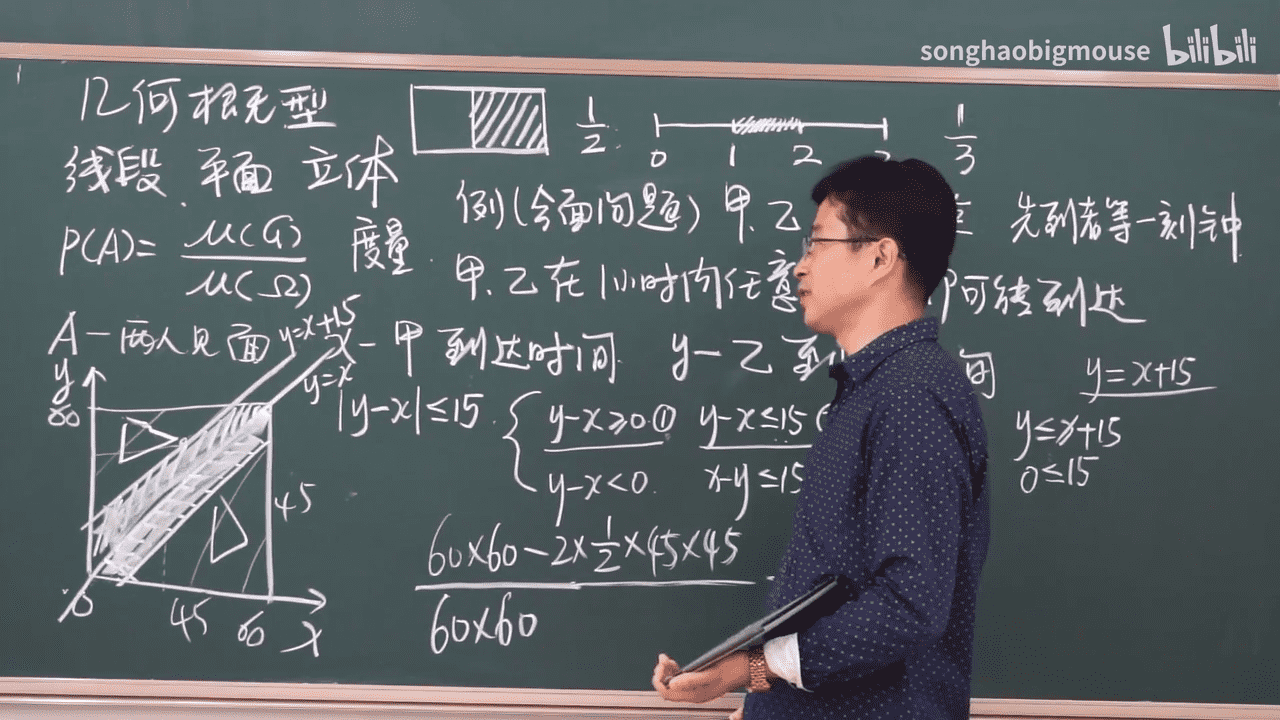 songhaobigmouse bilibili
几何概型
线段、平面 立体
P(A)= μ(G)/μ(Ω) 度量
1/2
0 1 2
1/3
例(会面问题) 甲.乙 先到者等一刻钟
甲.乙在1小时内任意 即可能到达
A-两人见面 x-甲到达时间 y-乙到 间
y=x+15
y=x
y
60
|y-x|≤15
{ y-x≥0 ① y-x≤15
y-x<0 x-y≤15
y=x+15
y≤x+15
0≤15
45
0 45 60 x
60×60-2×1/2×45×45
60×60